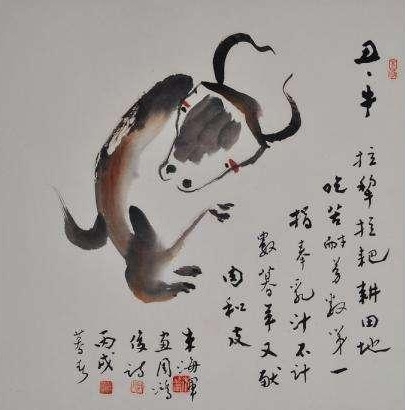 丑、牛
拉犁拉耙耕田地
吃苦耐劳数第一
奉乳汁不计
数暮年又献
肉和皮
海
画周鸿
俊诗
丙戌
暮春